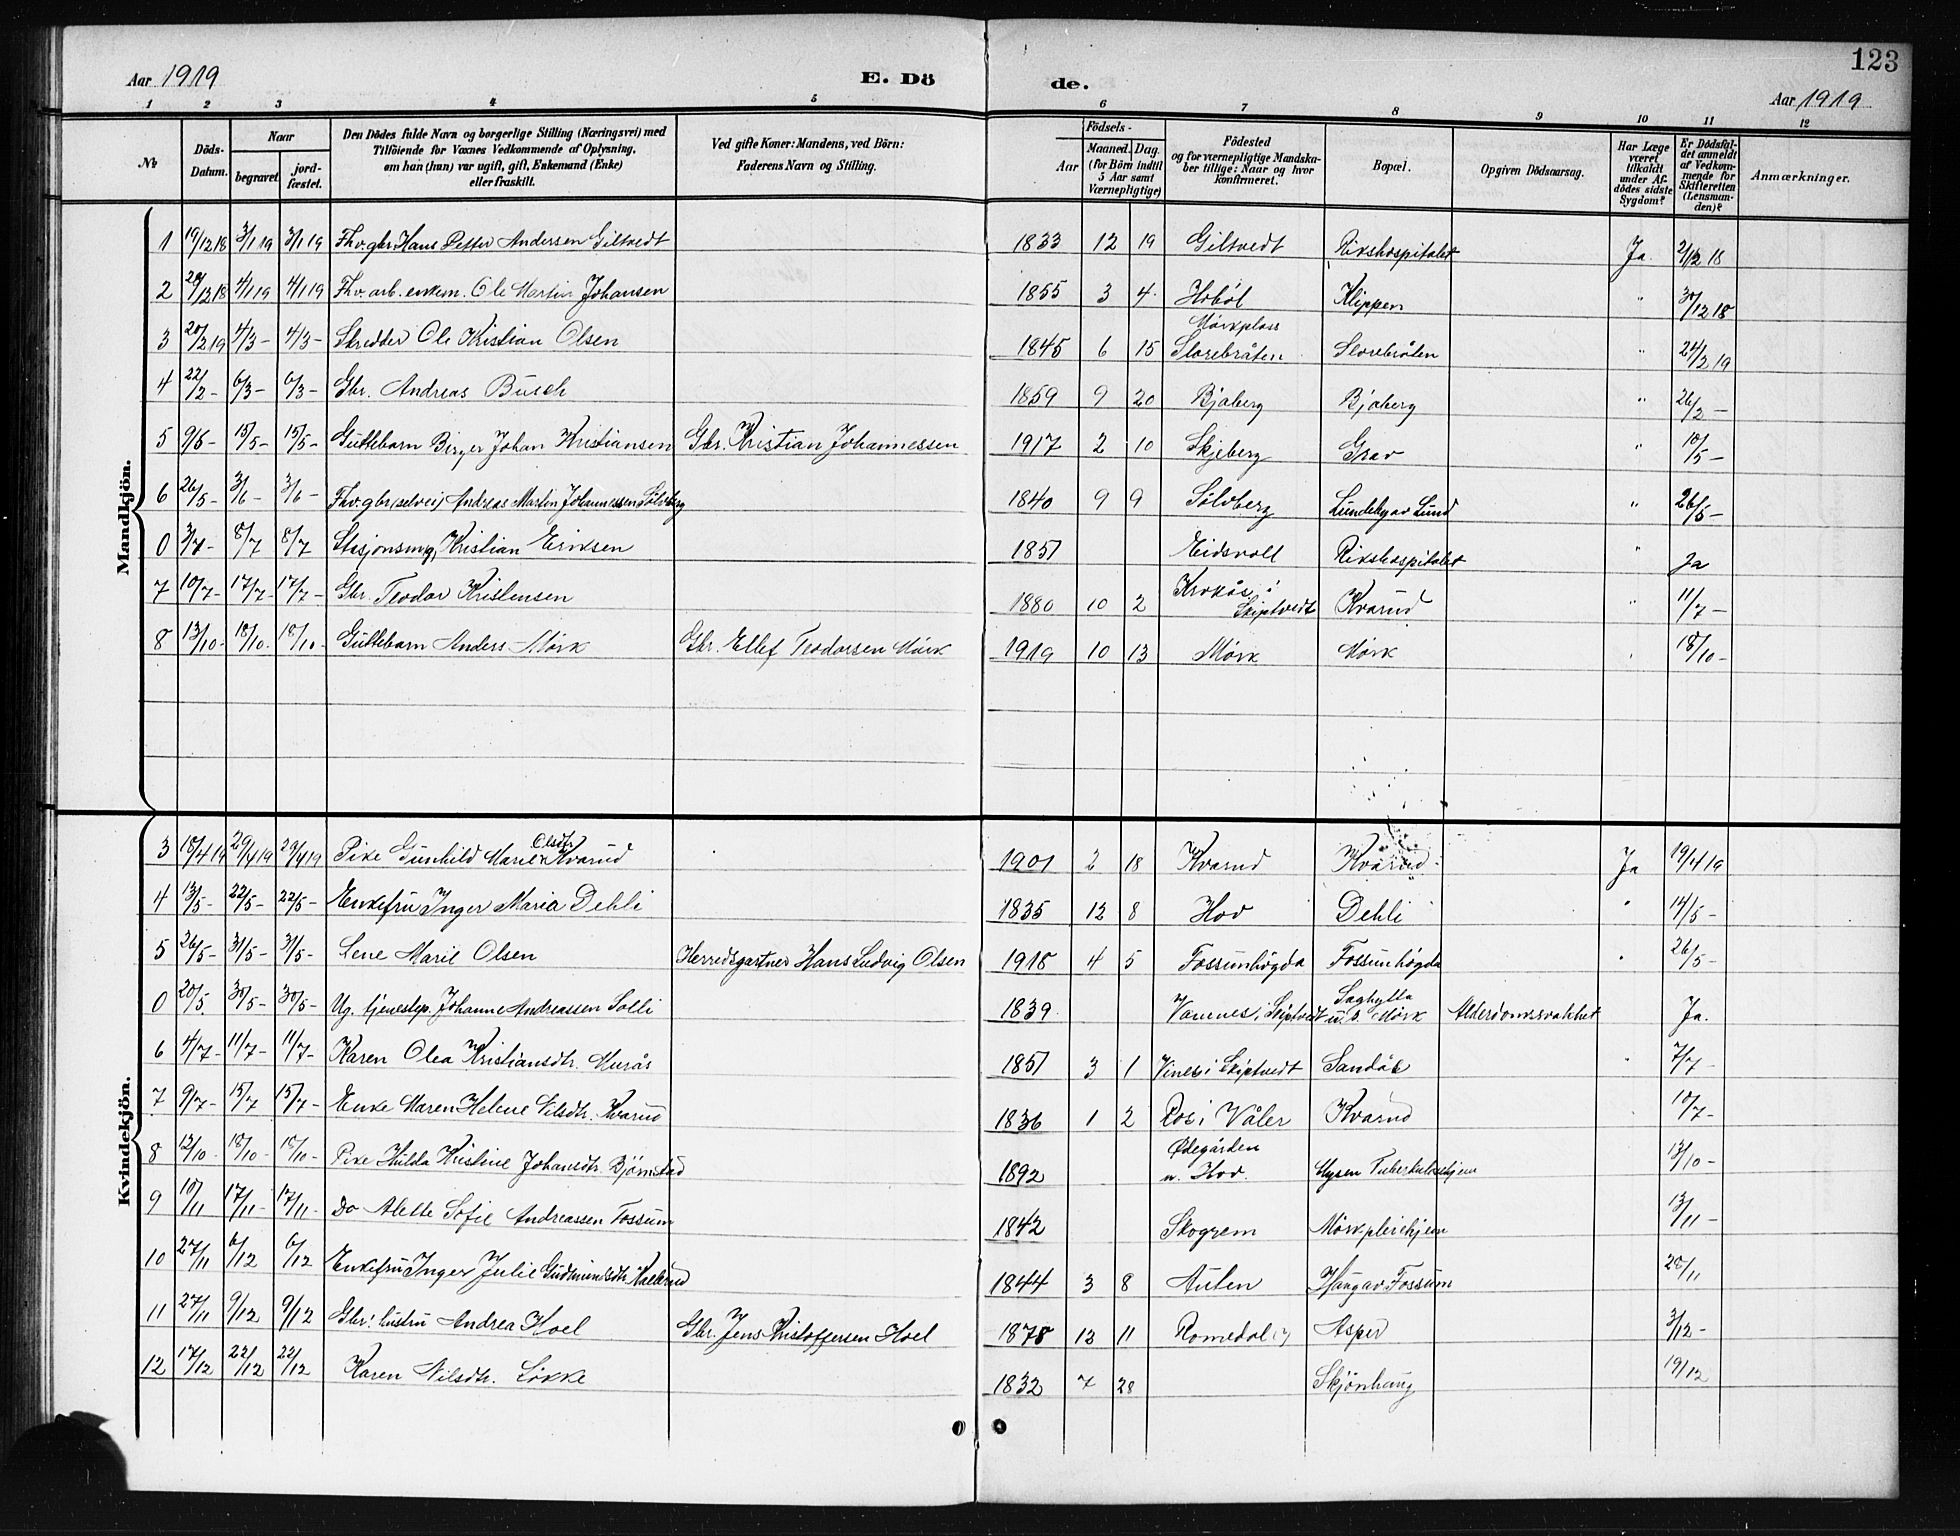 123
Aar 1919 E. Dö de. Aar 1919
1 2 3 4 5 6 7 8 9 10 11 12
No
Döds-Datum.
Naar begravet. jord-fæstet.
Den Dödes fulde Navn og borgerlige Stilling (Næringsvei) med Tilföiende for Voxnes Vedkommende af Oplysning, om han (hun) var ugift, gift, Enkemand (Enke) eller fraskilt.
Ved gifte Koner: Mandens, ved Börn: Faderens Navn og Stilling.
Födsels- Aar Maaned. Dag. (for Börn indtil 5 Aar samt Værnepligtige)
Födested og for værnepligtige Mandskaber tillige: Naar og hvor konfirmeret.
Bopæl.
Opgiven Dödsaarsag.
Har Læge været tilkaldt under Afdödes sidste Sygdom?
Er Dödsfaldet anmeldt af Vedkommende for Skifteretten (Lensmanden)?
Anmærkninger.
Mandkjön.
1 19/12 18 3/1 19 3/1 19 Fhv. gbr. Hans Petter Andersen Giltvedt 1833 12 19 Giltvedt Rikshospitalet Ja 2/12 18
2 4/1 19 4/1 19 Fhv. arb. enkem. Ole Martin Johansen 1855 3 4 Hobøl Klippen " 30/12 18
3 20/2 19 4/3 - 4/3 - Skredder Ole Kristian Olsen 1845 6 15 Mørkplass Storebråten Storebråten " 24/2 19
4 22/2 - 6/3 - 6/3 - Gbr. Andreas Busch 1859 9 20 Bjaberg Bjaberg " 26/2 -
5 9/5 - 15/5 - 15/5 - Guttebarn Birger Johan Kristiansen Gbr. Kristian Johannessen 1917 2 10 Skjeberg Grav " 10/5 -
6 26/5 - 3/6 - 3/6 - Fhv. gbr (selvei) Andreas Martin Johannessen Sølvberg 1840 9 9 Sølvberg Lundeby av Lund " 26/5 -
0 3/7 - 8/7 8/7 Stasjonsmg. Kristian Eriksen 1851 Eidsvoll Rikshospitalet " Ja
7 10/7 - 17/7 - 17/7 - Gbr. Teodor Kristensen 1880 10 2 Krokås i Skiptvedt Kvarud " 11/7 -
8 13/10 - 18/10 - 18/10 - Guttebarn Anders Mørk Gbr. Ellef Teodorsen Mørk 1919 10 13 Mørk Mørk " 18/10 -
Kvindekjön.
3 18/4 19 29/4 19 29/4 19 Pike Gunhild Marie Olsdtr. Kvarud 1901 2 18 Kvarud Kvarud Ja 19/4 19
4 13/5 - 22/5 - 22/5 - Enkefru Inger Maria Dehli 1835 12 8 Hov Dehli " 14/5 -
5 26/5 - 31/5 - 31/5 - Lene Marie Olsen Herredsgartner Hans Ludvig Olsen 1918 4 5 Fossumhøgda Fossumhøgda " 26/5 -
0 20/5 30/5 - 30/5 - Ug. tjenestep. Johanne Andreassen Solli 1839 Vannes i Skiptvedt Saghytta u. S. Mørk Alderdomssvakhet Ja.
6 4/7 - 11/7 - 11/7 - Karen Olea Kristiansdtr. Murås 1851 3 1 i Skiptvedt Sandåk " 7/7 -
7 9/7 - 15/7 15/7 - Enke Maren Helene Nilsdtr. Kvarud 1836 1 2 Ros i Våler Kvarud 10/7 -
8 12/10 - 18/10 - 18/10 - Pike Hilda Kristine Johansdtr. Bjørnstad 1892 Ødegården u. Hov. Mysen Tuberkulosehjem 13/10 -
9 10/11 17/11 - 17/11 - Do Alette Sofie Andreassen Fossum 1842 Skogrem Mørk pleiehjem 13/11 -
10 27/11 6/12 6/12 Enkefru Inger Julie Gudmundsdtr. 1844 3 8 Auten Haug av Fossum 28/11
11 27/11 9/12 9/12 Gbr. hustru Andrea Hoel Gbr. Jens Kristoffersen Hoel 1878 12 11 Romedal (?) Asper 3/12 -
12 17/12 22/12 22/12 Karen Nilsdtr. Løkke 1832 7 28 Skjønhaug 19/12